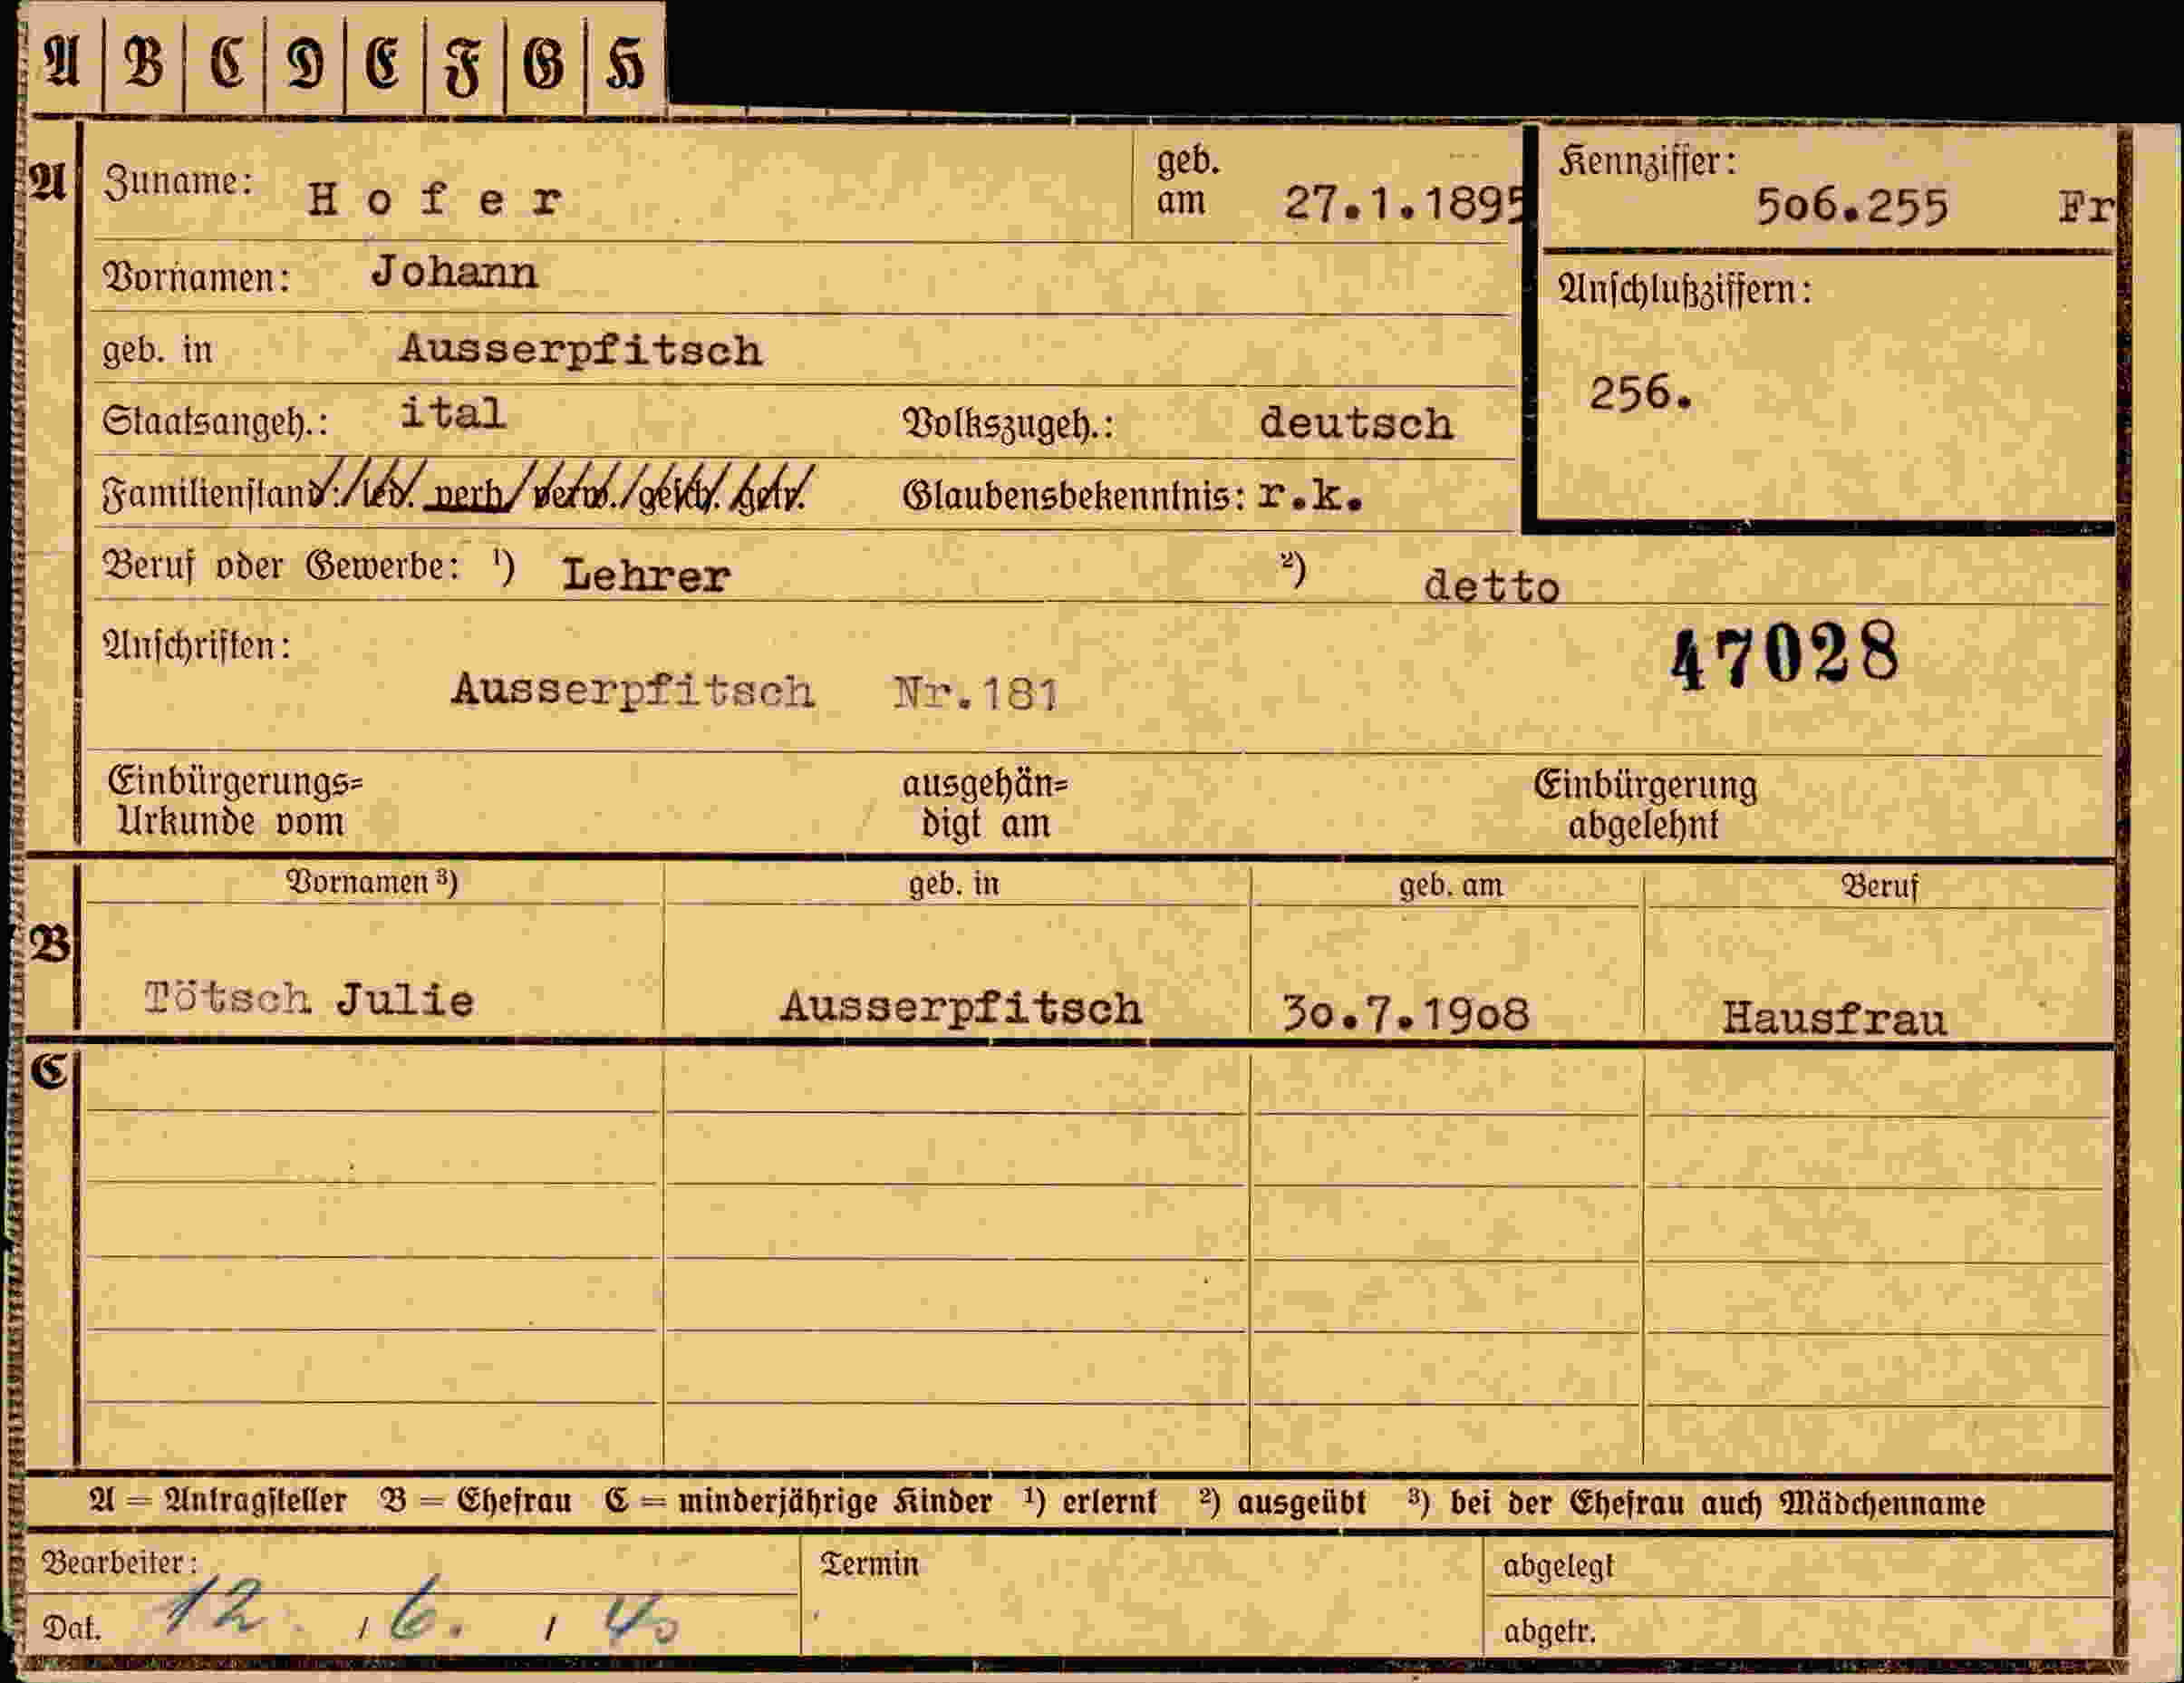 A B C D E F G H
A Zuname: Hofer geb. am 27.1.1895 Kennziffer: 506.255 Fr
Vornamen: Johann Anschlußziffern:
geb. in Ausserpfitsch 256.
Staatsangeh.: ital Volkszugeh.: deutsch
Familienstand: led. verh. verw. gesch. getr. Glaubensbekenntnis: r.k.
Beruf oder Gewerbe: ¹) Lehrer ²) detto
Anschriften: 47028
Ausserpfitsch Nr.181
Einbürgerungs= ausgehän= Einbürgerung
Urkunde vom digt am abgelehnt
Vornamen ³) geb. in geb. am Beruf
B Tötsch Julie Ausserpfitsch 30.7.1908 Hausfrau
C
A = Antragsteller B = Ehefrau C = minderjährige Kinder ¹) erlernt ²) ausgeübt ³) bei der Ehefrau auch Mädchenname
Bearbeiter: Termin abgelegt
Dat. 12. / 6. / 40 abgetr.